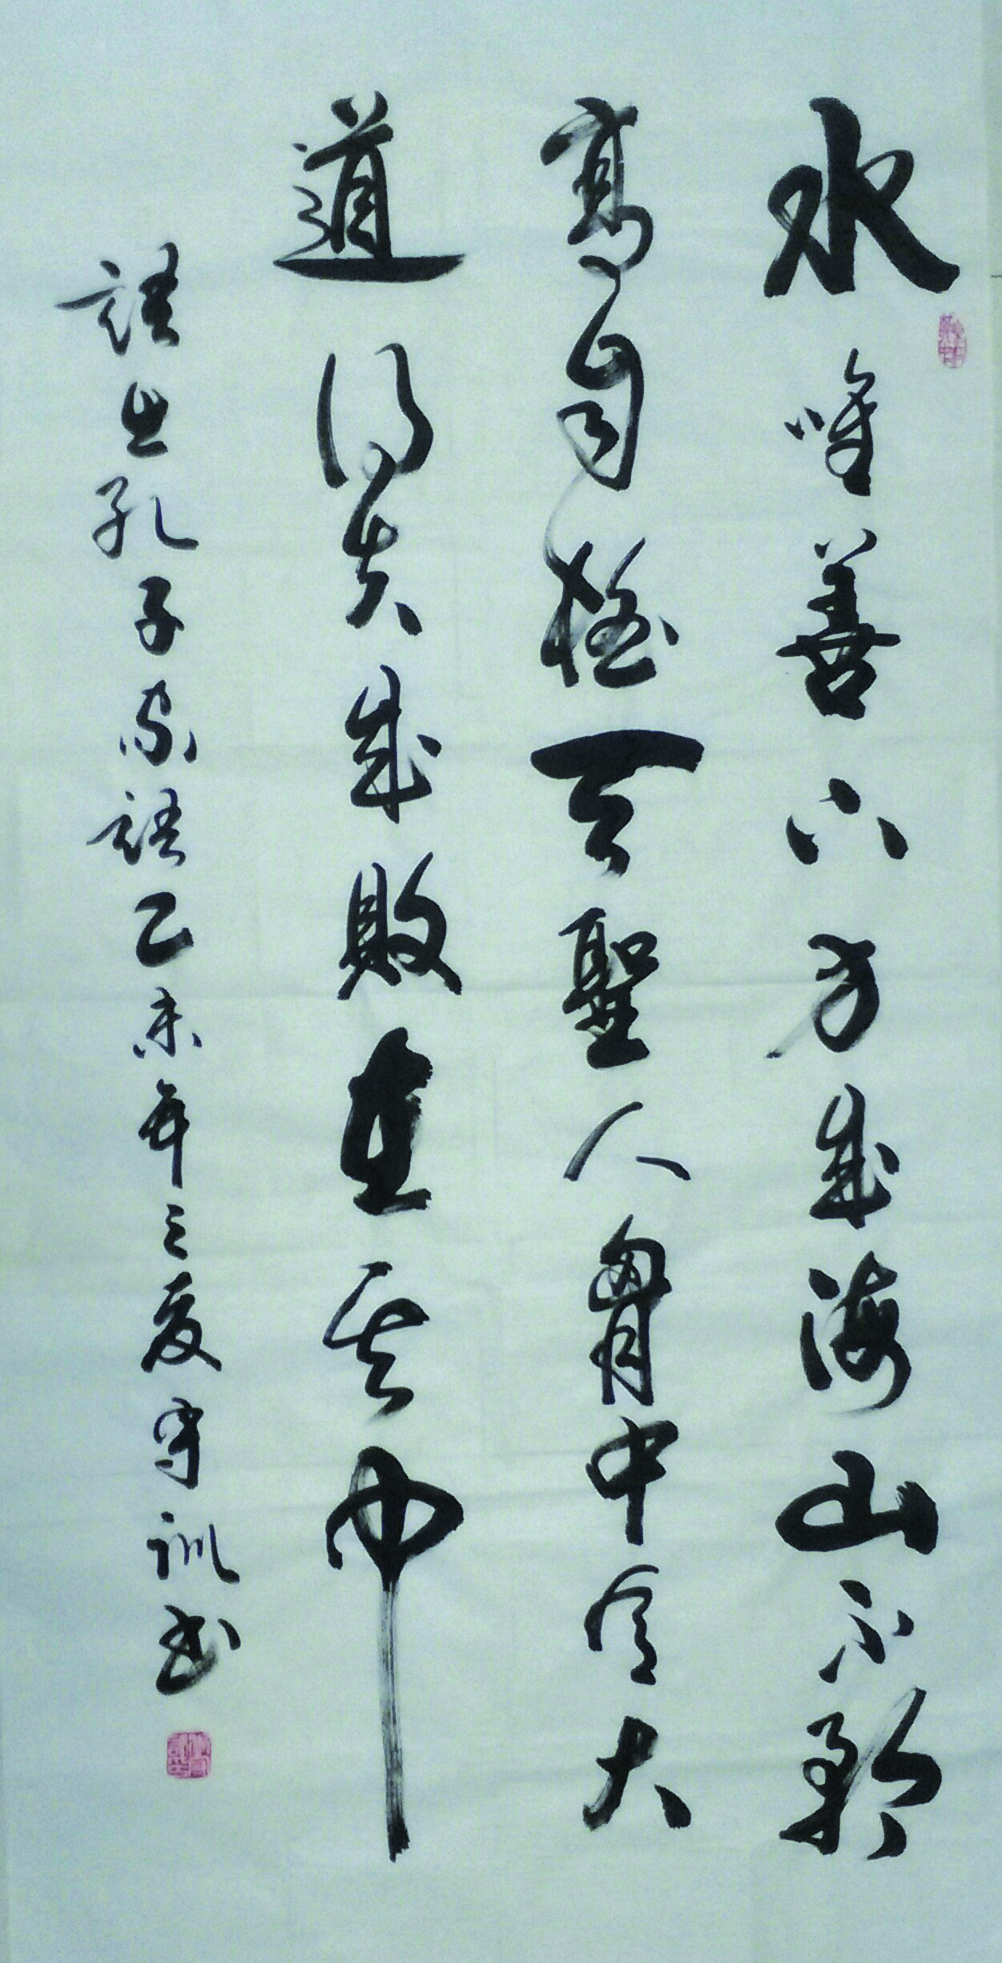 水唯善下方成海山不矜
高自極天聖人胸中有大
道得失成敗在其中
語出孔子家語乙未年之夏守訓书